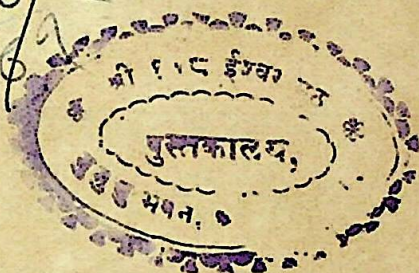 श्री १०८ ईश्वर
पुस्तकालय,
मुमुक्षु भवन,